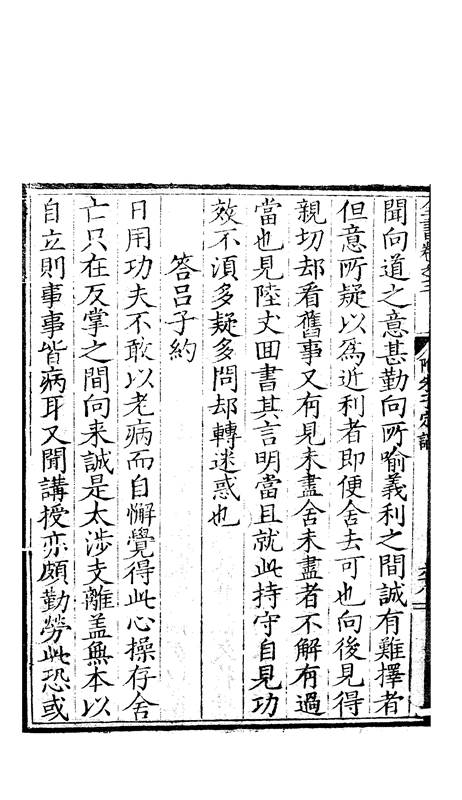 聞向道之意甚勤向所喻義利之間誠有難擇者
但意所疑以為近利者即便舍去可也向後見得
親切却看舊事又有見未盡舍未盡者不解有過
當也見陸丈囬書其言明當且就此持守自見功
效不湏多疑多問却轉迷惑也
答呂子約
日用功夫不敢以老病而自懈覺得此心操存舍
亡只在反掌之間向来誠是太涉支離盖無本以
自立則事事皆病耳又聞講授亦頗勤勞此恐或